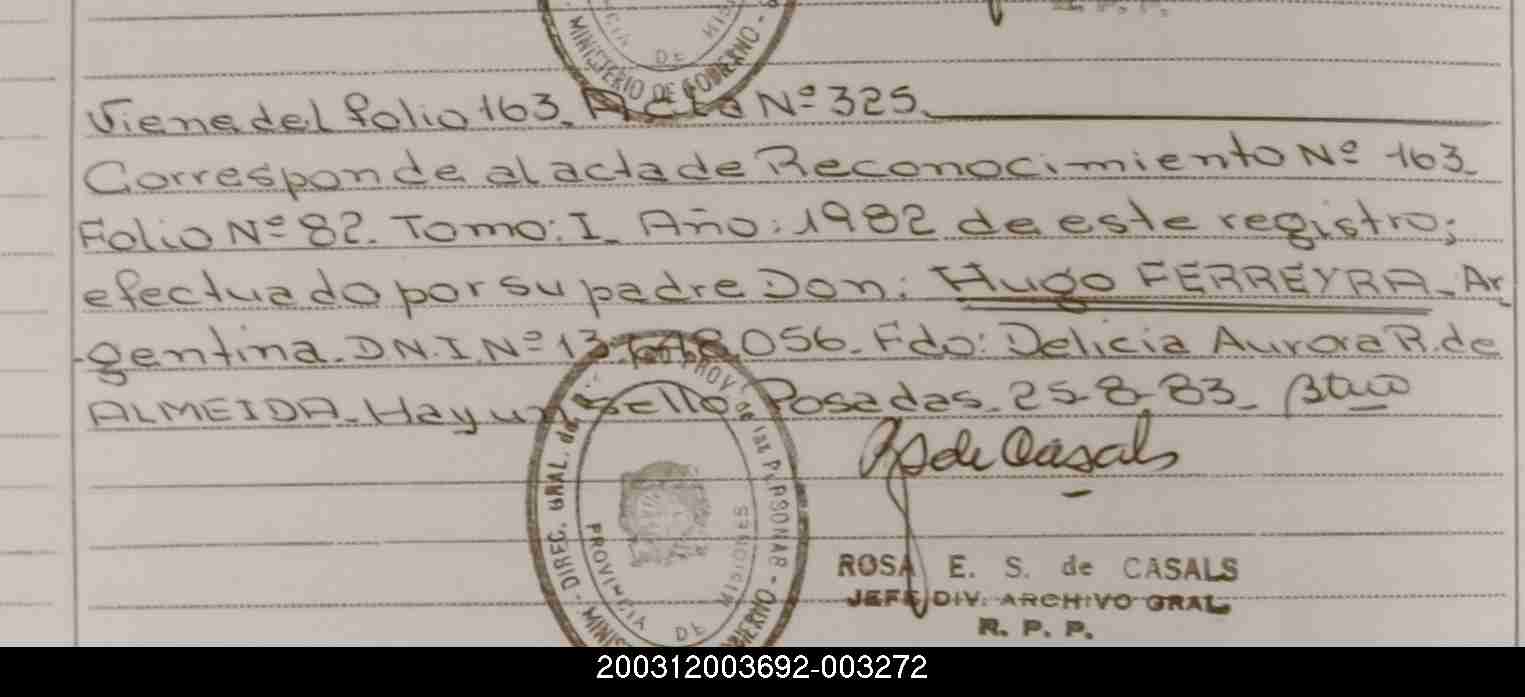 MINISTERIO DE GOBIERNO
DE
Viene del folio 163. Acta Nº 325.
Corresponde al acta de Reconocimiento Nº 163.
Folio Nº 82. Tomo: I. Año: 1982 de este registro;
efectuado por su padre Don: Hugo FERREYRA. Ar
gentina. D.N.I. Nº 13 056. Fdo: Delicia Aurora R. de
ALMEIDA. Hay un sello. Posadas. 25-8-83.
de Casals
DIREC. GRAL. de PROV. de las PERSONAS
PROVINCIA DE MISIONES
ROSA E. S. de CASALS
JEFE DIV. ARCHIVO GRAL.
R. P. P.
200312003692-003272